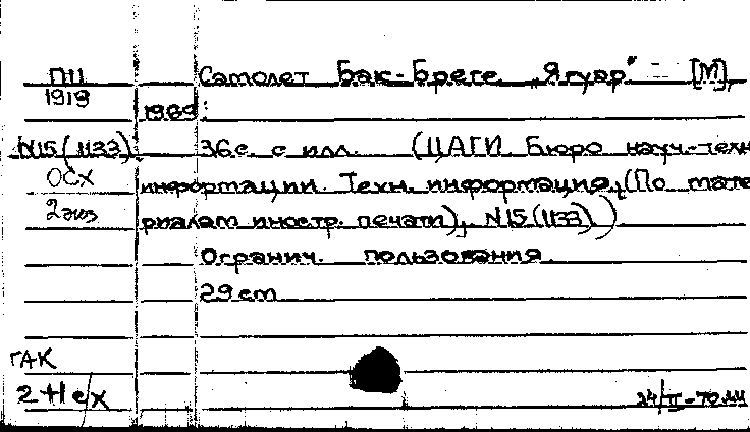 П11 Самолет Бак-Бреге "Ягуар" - [М],
1918 1969.
N15(1133) 36с. с илл. (ЦАГИ. Бюро науч.-техн
ОСХ информации. Техн. информация, (По мате
2 экз риалам иностр. печати), N15(1133))
Огранич. пользования.
29 cm
ГАК
2+1 с/х 24/II-70